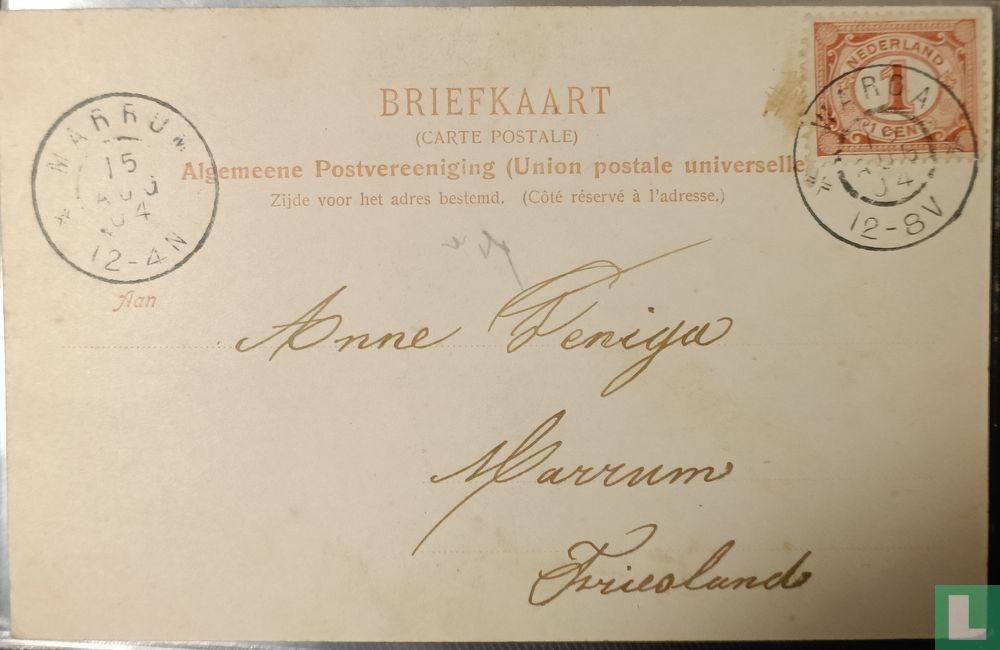 NEDERLAND
1
1 CENT
BRIEFKAART
(CARTE POSTALE)
Algemeene Postvereeniging (Union postale universelle
Zijde voor het adres bestemd. (Côté réservé à l'adresse.)
MARRUM
15
AUG
04
12-4N
04
12-8V
Aan
Anne Feniga
Marrum
Friesland
L